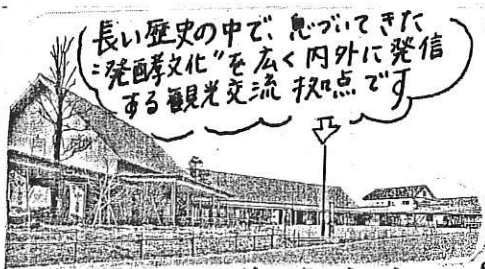 長い歴史の中で、息づいてきた
"発酵文化"を広く内外に発信
する観光交流拠点です